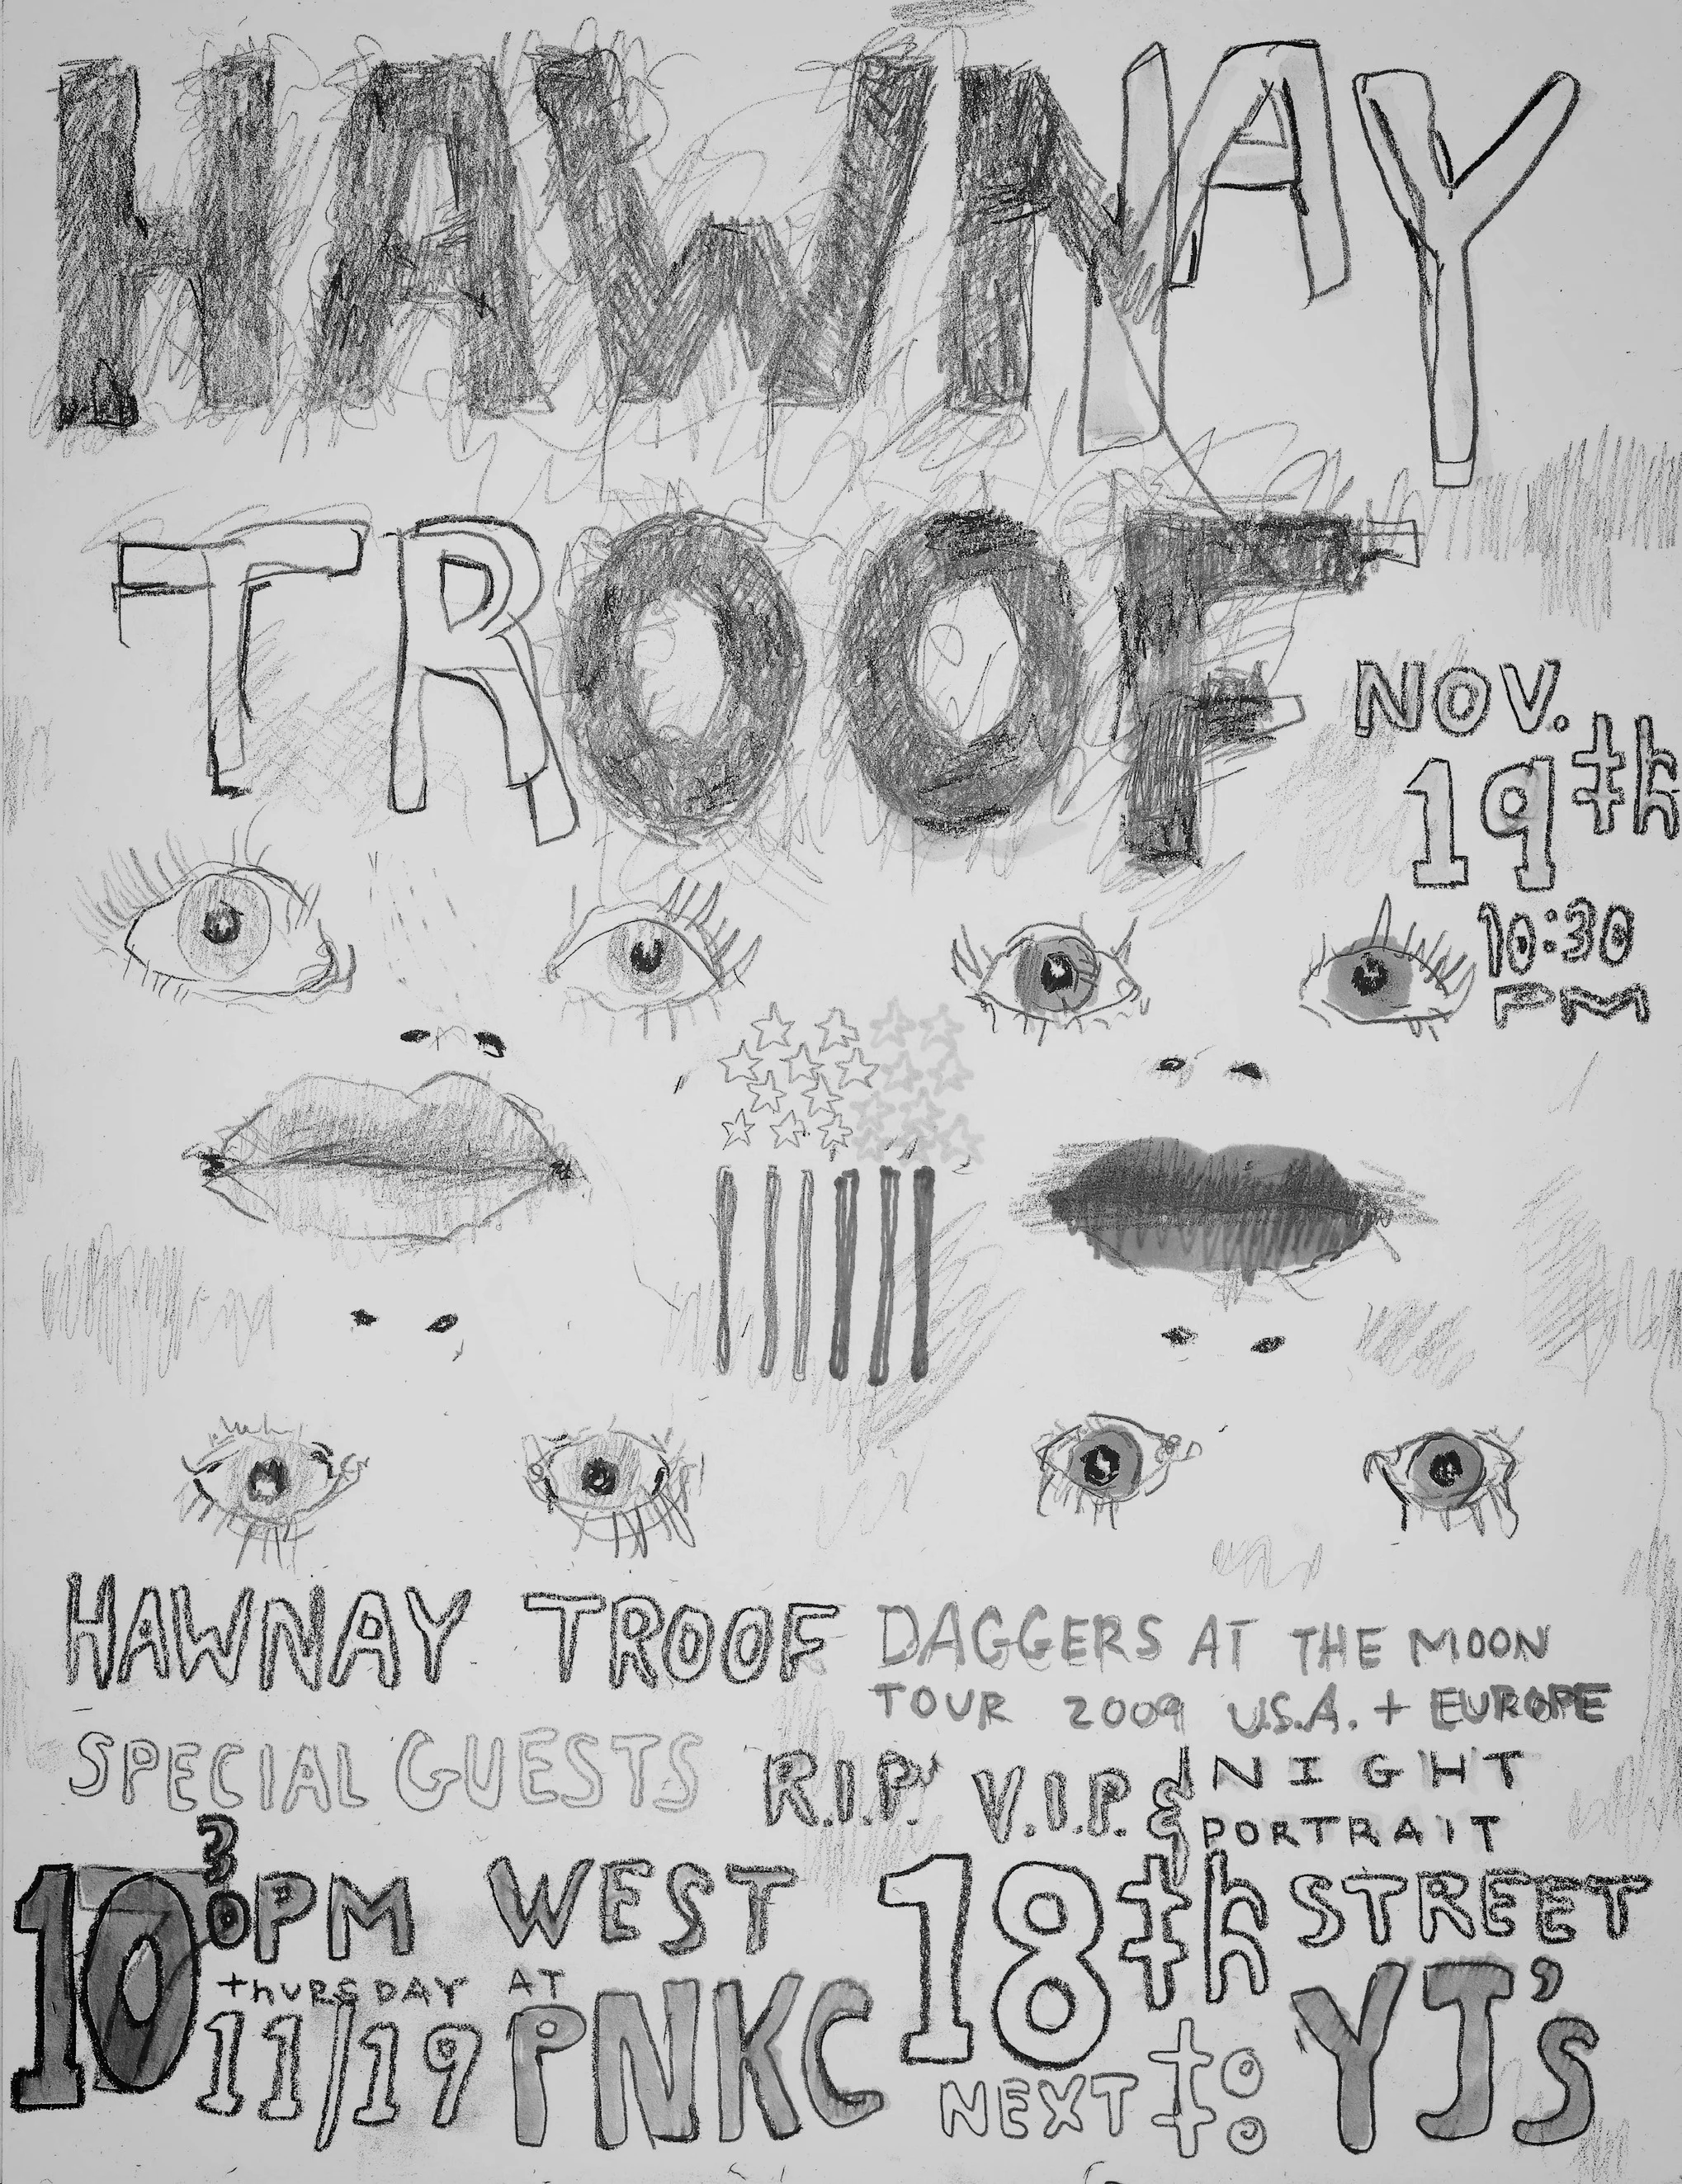 HAWNAY
TROOF
NOV.
19th
10:30
PM
HAWNAY TROOF
DAGGERS AT THE MOON
TOUR 2009 U.S.A. + EUROPE
SPECIAL GUESTS R.I.P. V.I.P. & NIGHT
PORTRAIT
1030PM WEST 18th STREET
THURSDAY AT
11/19 PNKC NEXT to YJ's